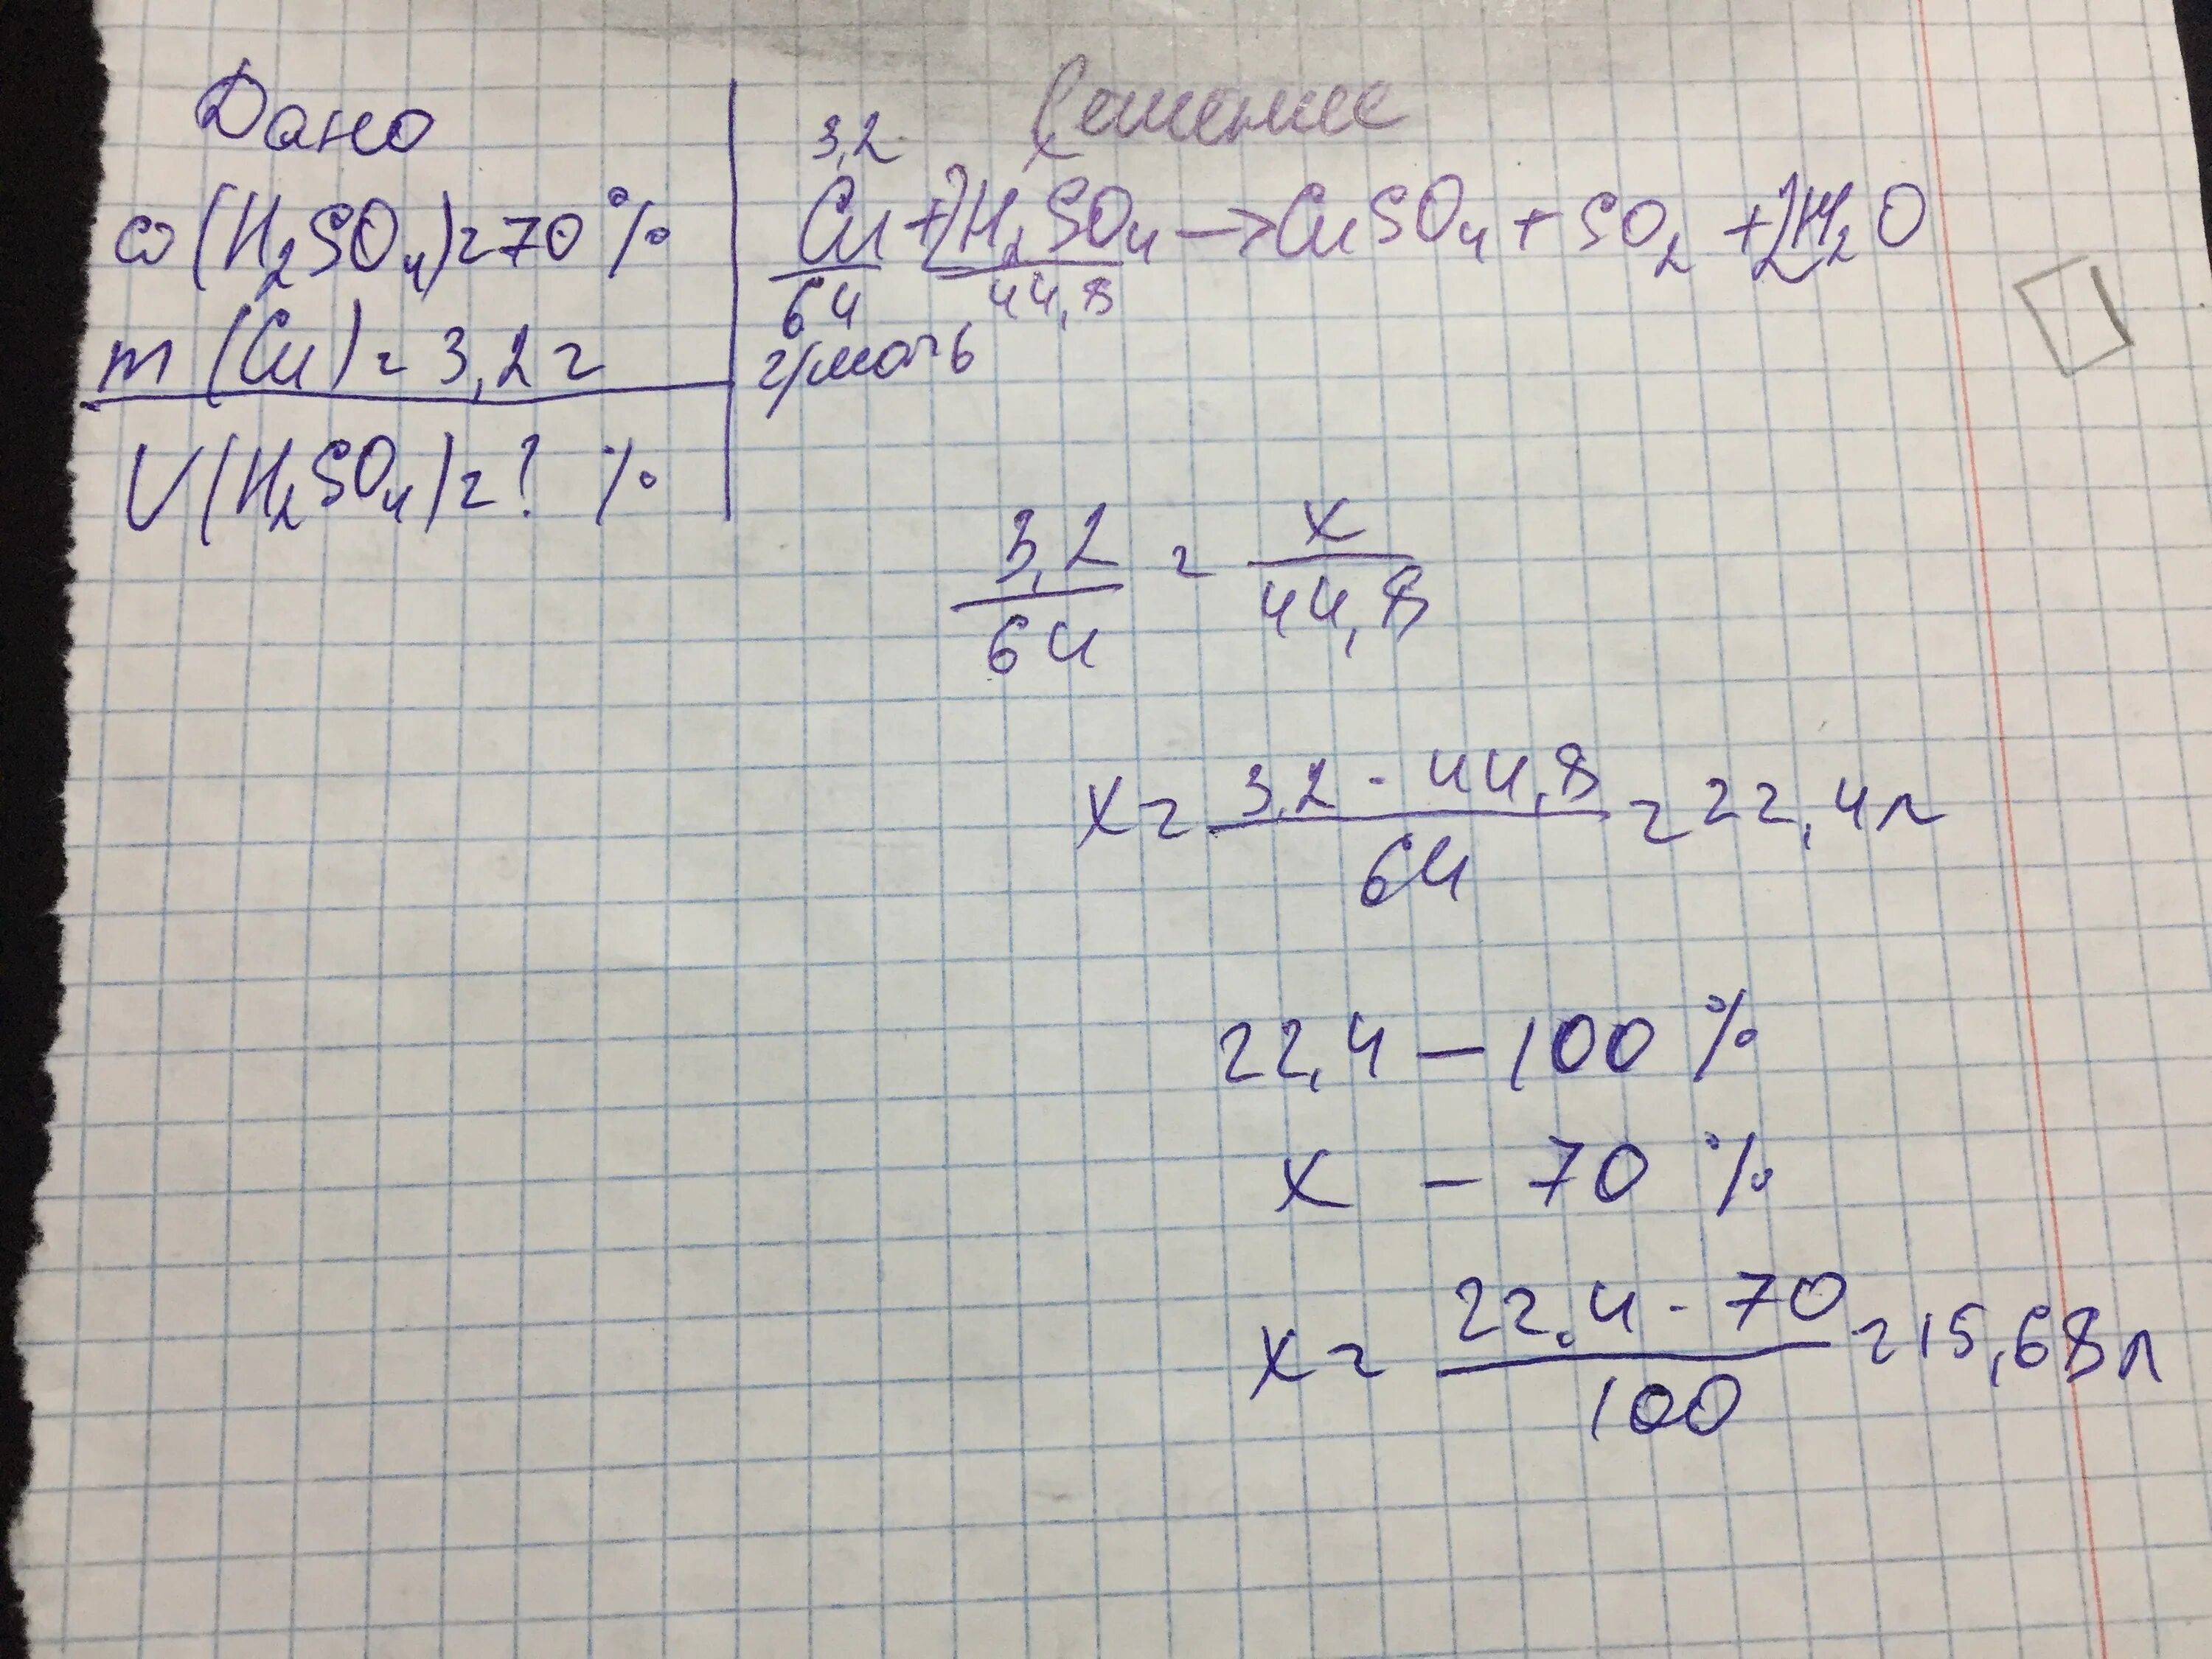 Дано
ω(H₂SO₄)=70%
m(Cu)=3,2г
V(H₂SO₄)=? %
Решение
3,2
Cu + 2H₂SO₄ → CuSO₄ + SO₂ + 2H₂O
64 44,8
г/моль
3,2/64 = x/44,8
x = 3,2 · 44,8/64 = 22,4л
22,4 — 100%
x – 70%
x = 22,4 · 70/100 = 15,68л